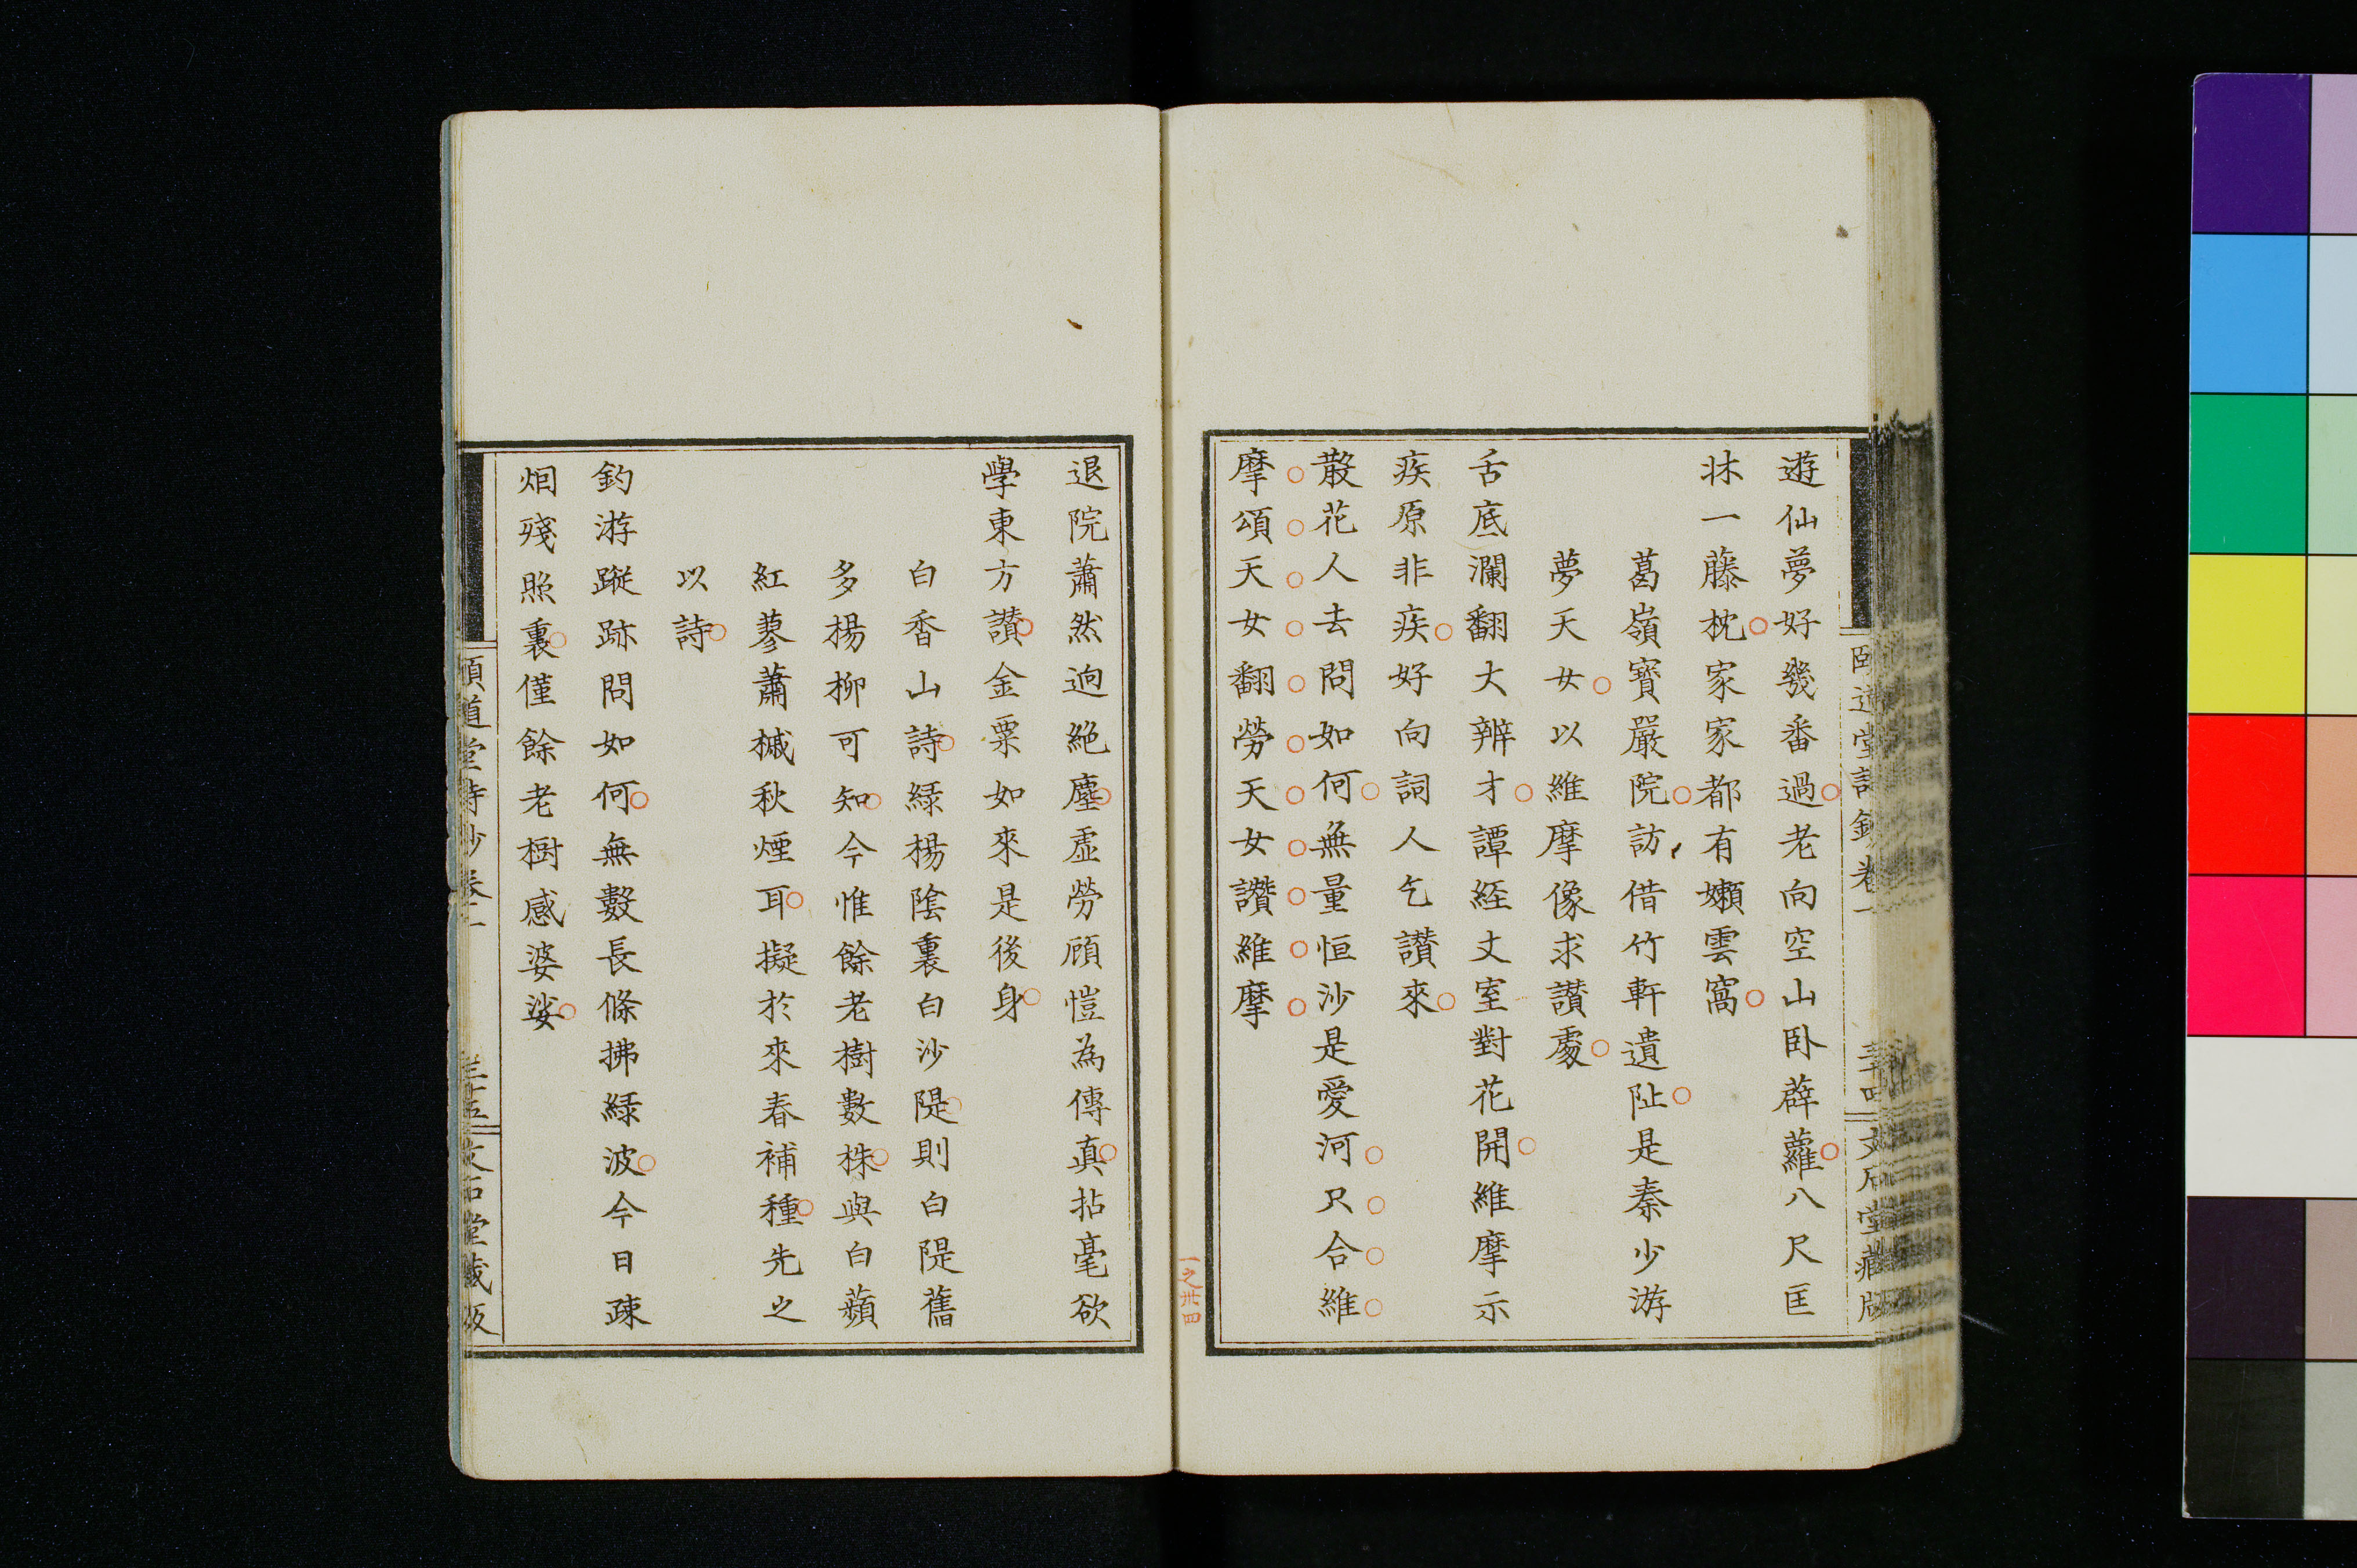 遊仙夢好幾番過老向空山卧薜蘿八尺匡
牀一藤枕家家都有嬾雲窩
葛嶺寶嚴院訪借竹軒遺阯是秦少游
夢天女以維摩像求讚處
舌底瀾翻大辨才譚経丈室對花開維摩示
疾原非疾好向詞人乞讚來
散花人去問如何無量恒沙是愛河只合維
摩頌天女翻勞天女讚維摩
一之卅四
退院蕭然迥絶塵虛勞顧愷為傳真拈毫欲
學東方讚金粟如來是後身
白香山詩緑楊陰裏白沙隄則白隄舊
多楊柳可知今惟餘老樹數株與白蘋
紅蓼蕭槭秋煙耳擬於來春補種先之
以詩
釣游蹤跡問如何無數長條拂緑波今日疎
烟殘照裏僅餘老樹感婆娑
頤道堂詩鈔卷一
三十五
文石堂藏版